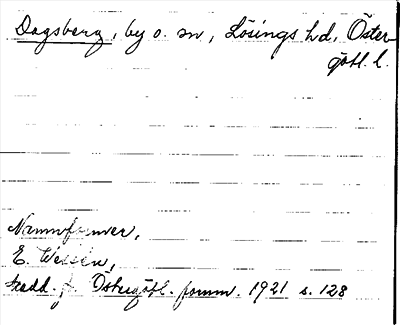 Dagsberg, by o. sn, Lösings hd, Öster-
götl. l.
Namnformer,
E. Wessén,
Medd. f. Östergötl. fornm. 1921 s. 128